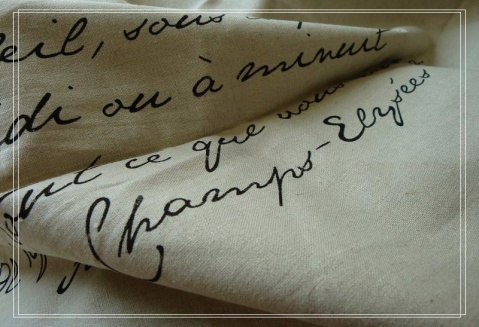 eil, sous
di ou à minuit
out ce que vous
Champs-Elysées